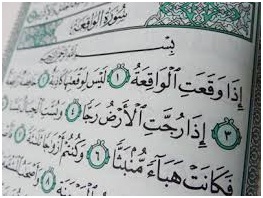 سُورَةُ الوَاقِعَةِ
بِسْمِ
إِذَا وَقَعَتِ ٱلْوَاقِعَةُ ١ لَيْسَ لِوَقْعَتِهَا كَاذِبَةٌ ٢
٣ إِذَا رُجَّتِ ٱلْأَرْضُ رَجًّا ٤ وَبُسَّتِ ٱلْجِبَالُ
فَكَانَتْ هَبَآءً مُّنۢبَثًّا ٦ وَكُنتُمْ أَزْوَٰجًا ثَلَٰثَةً ٧